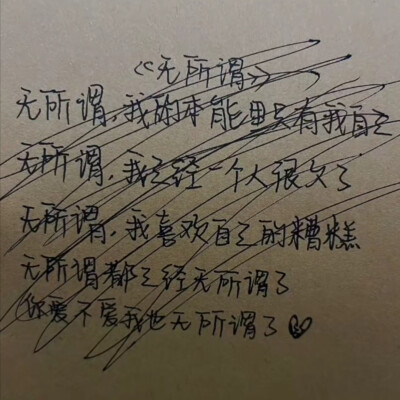 《无所谓》
无所谓，我的本能里只有我自己
无所谓，我已经一个人很久了
无所谓，我喜欢自己的糟糕
无所谓都已经无所谓了
你爱不爱我也无所谓了